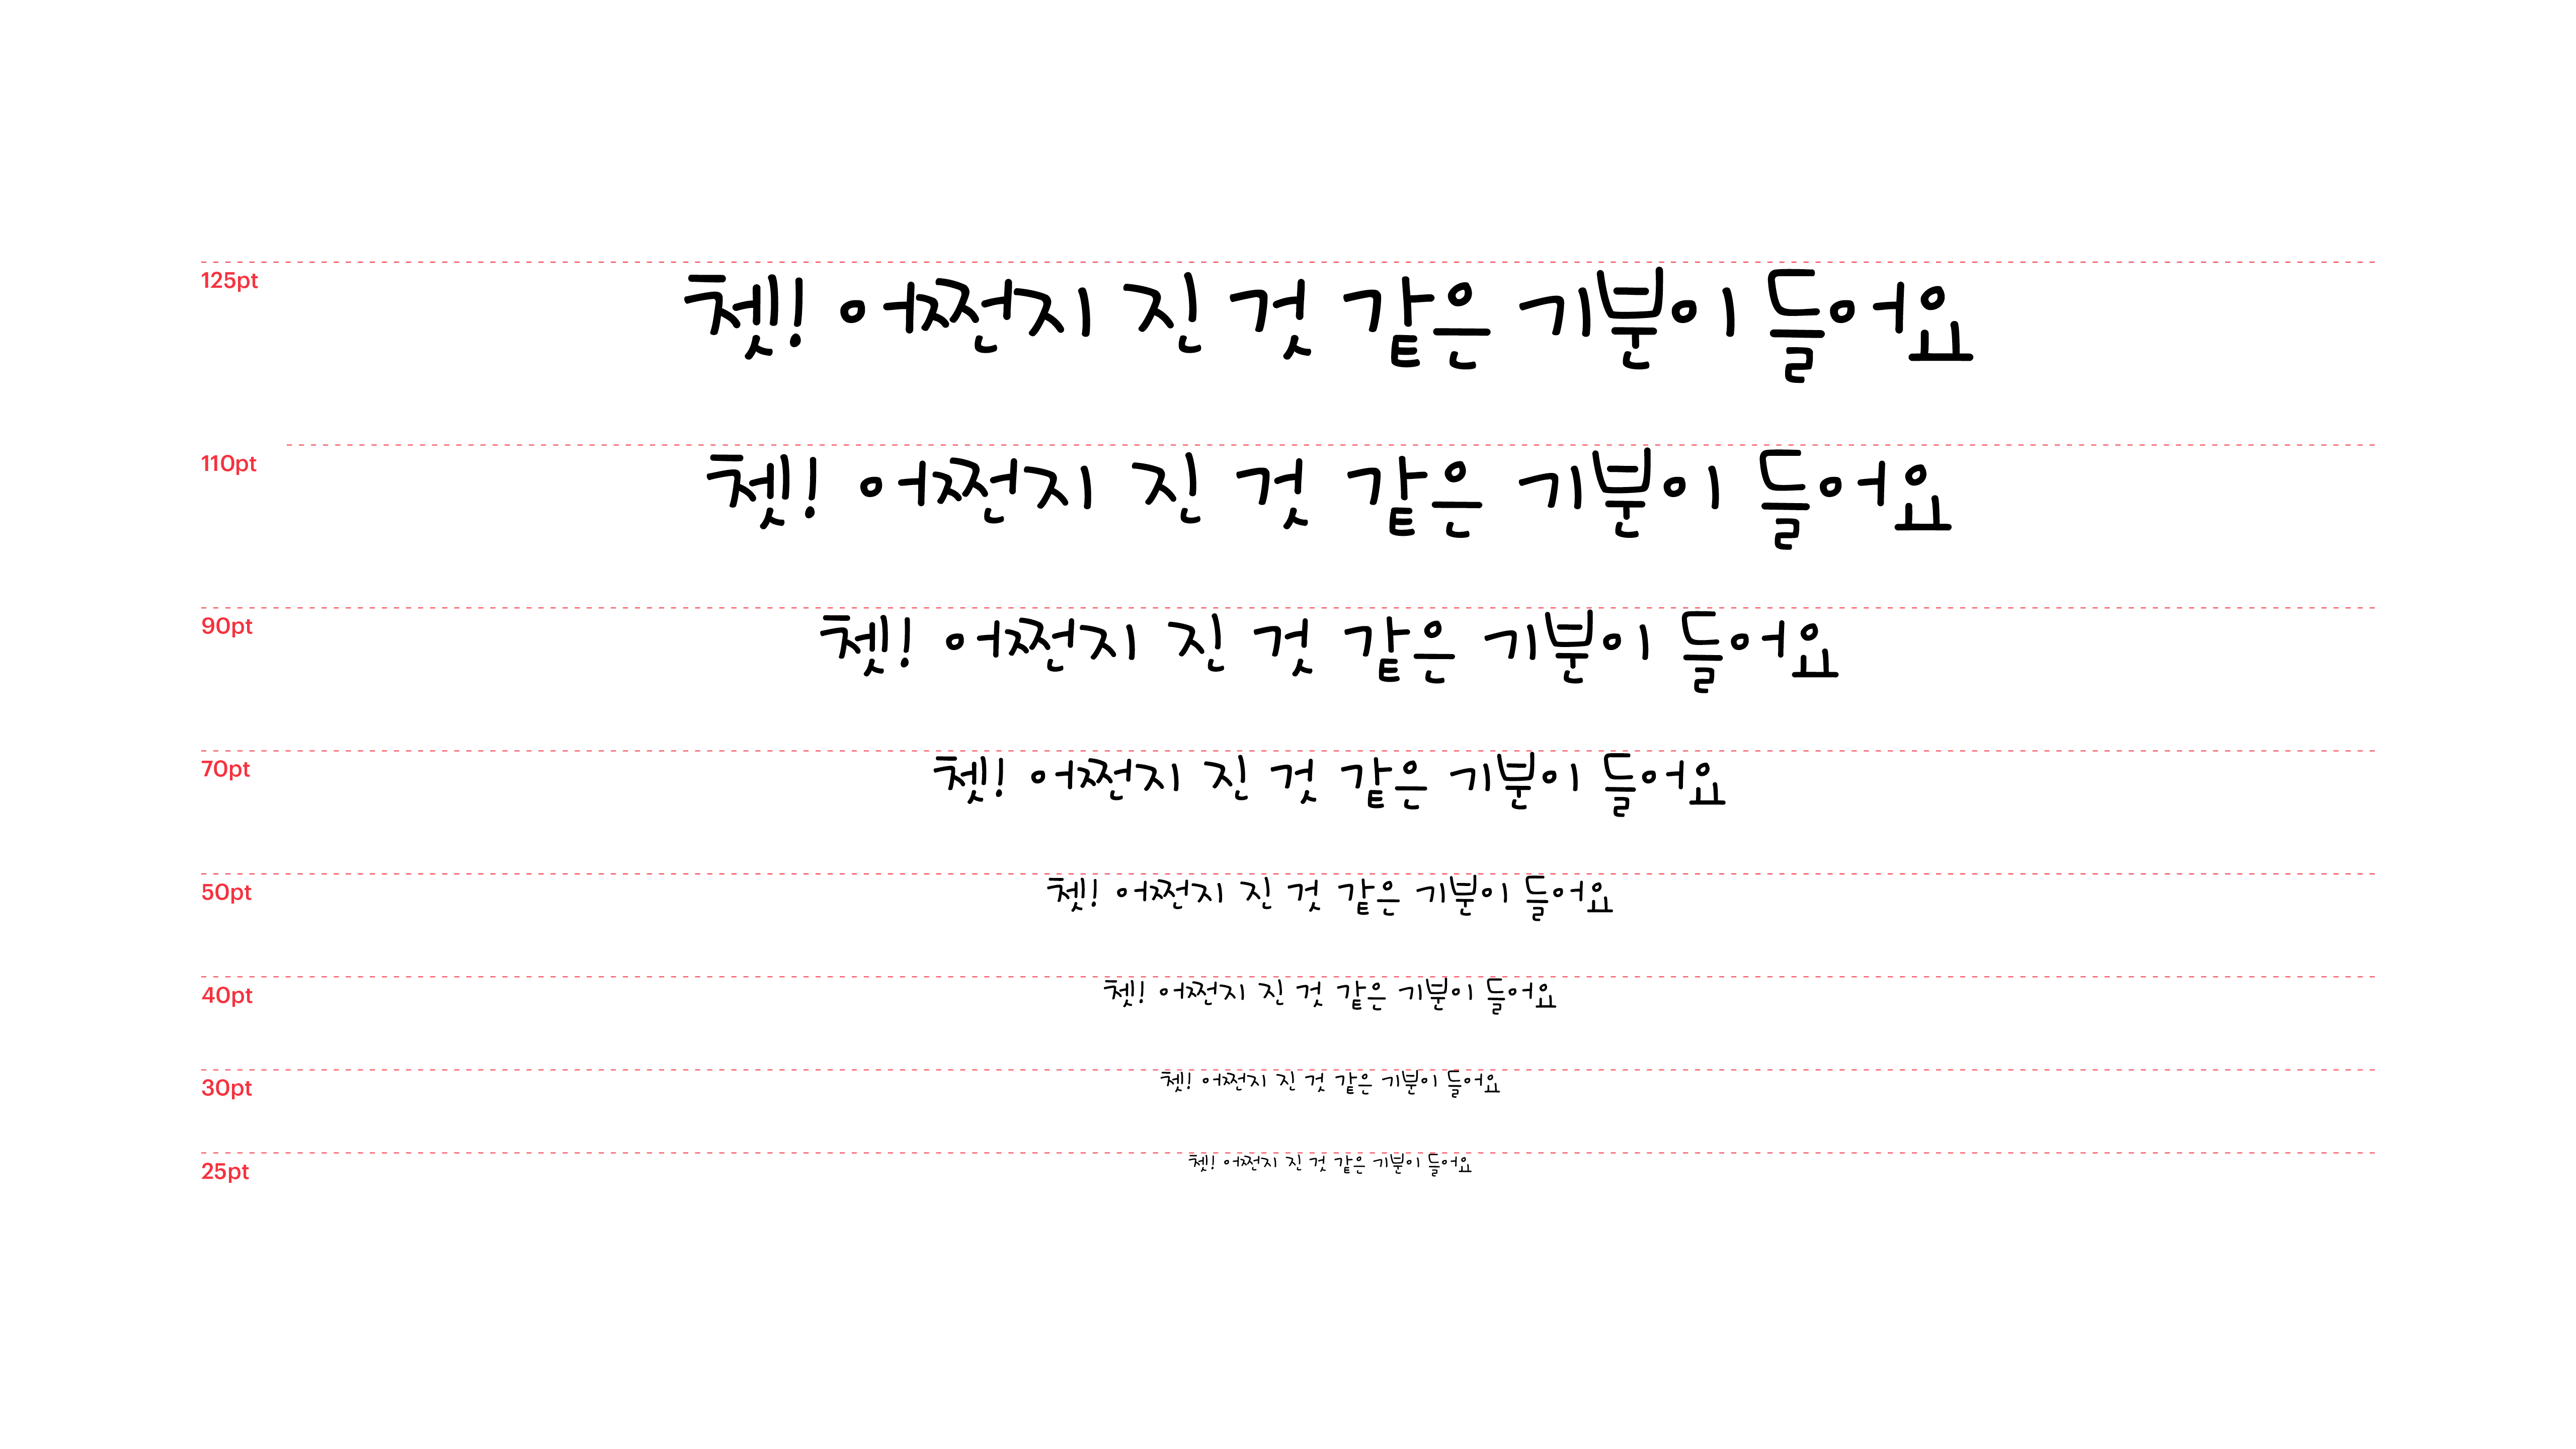 125pt
쳇! 어쩐지 진 것 같은 기분이 들어요
110pt
쳇! 어쩐지 진 것 같은 기분이 들어요
90pt
쳇! 어쩐지 진 것 같은 기분이 들어요
70pt
쳇! 어쩐지 진 것 같은 기분이 들어요
50pt
쳇! 어쩐지 진 것 같은 기분이 들어요
40pt
쳇! 어쩐지 진 것 같은 기분이 들어요
30pt
쳇! 어쩐지 진 것 같은 기분이 들어요
25pt
쳇! 어쩐지 진 것 같은 기분이 들어요